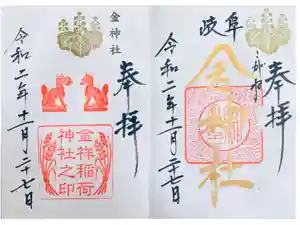 金神社
奉拝
令和二年十一月二十七日
金祥稲荷
神社之印
岐阜
奉拝
金神社
令和二年十一月二十七日